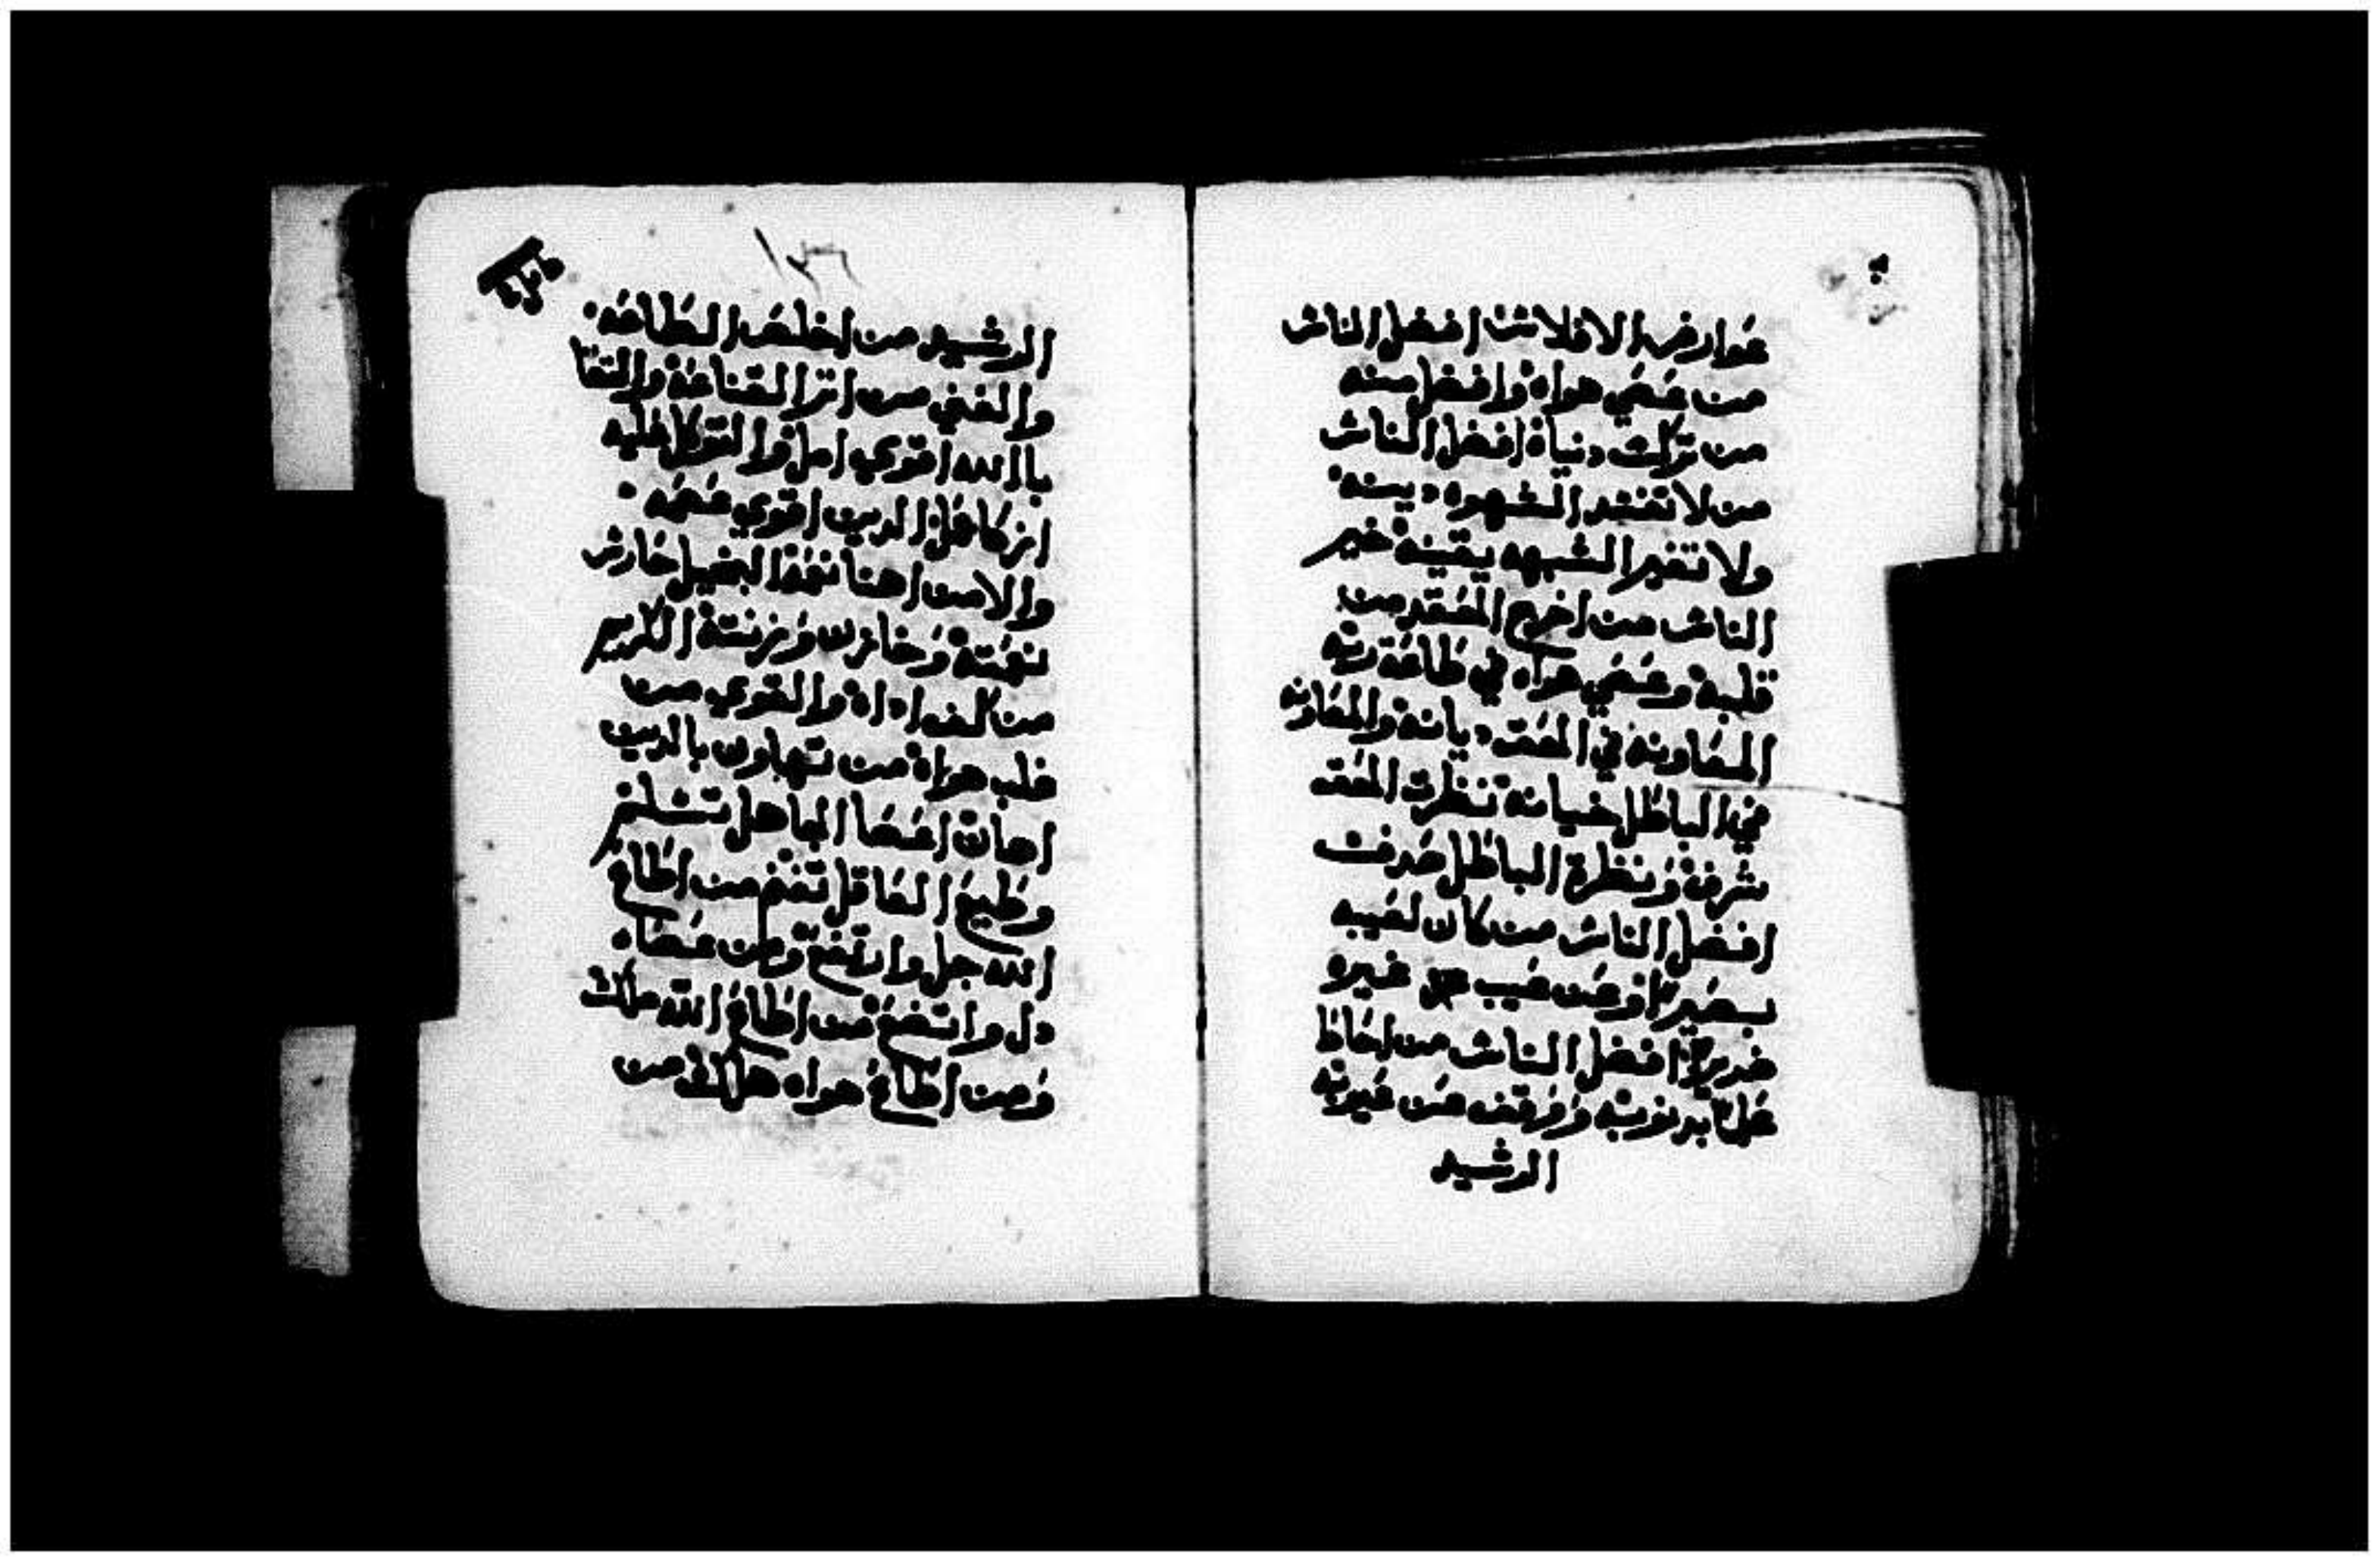 عوارض الافلاس افضل الناس
من عصي هواه وافضل منه
من ترك دنياه افضل الناس
من لا تفسد الشهوه دينه
ولا تغير الشبهه يقينه خير
الناس من اخرج الحقد من
قلبه وعصي هواه في طاعة ربه
المعاونه في الحق ديانه والمعاونه
في الباطل خيانه نظرت الحق
شرف ونظرة الباطل صرفت
افضل الناس من كان لعيبه
بصيرا وعن عيب غيره
ضريرا افضل الناس من احاط
علي بدنوبه ووقف من عيوبه
الرشيد
١٣
الرشيد من اخلص الطاعه
والغني من اتر القناعه والتقا
باالله اقوي امل والتوكل عليه
ازكا عمل الدين اقوي عصمه
والامن اهنا نعمه البخيل حارس
نعمته وخازن ورثته الكريم
من كف اداه والقوي من
غلب هواه من تهاون بالدين
اهان اعصا الجاهل تسلم
وطيع العاقل تغنم من اطاع
الله جل وارتفع ومن عصاه
دل واتضع من اطاع الله ملك
ومن اطاع هواه هلك من